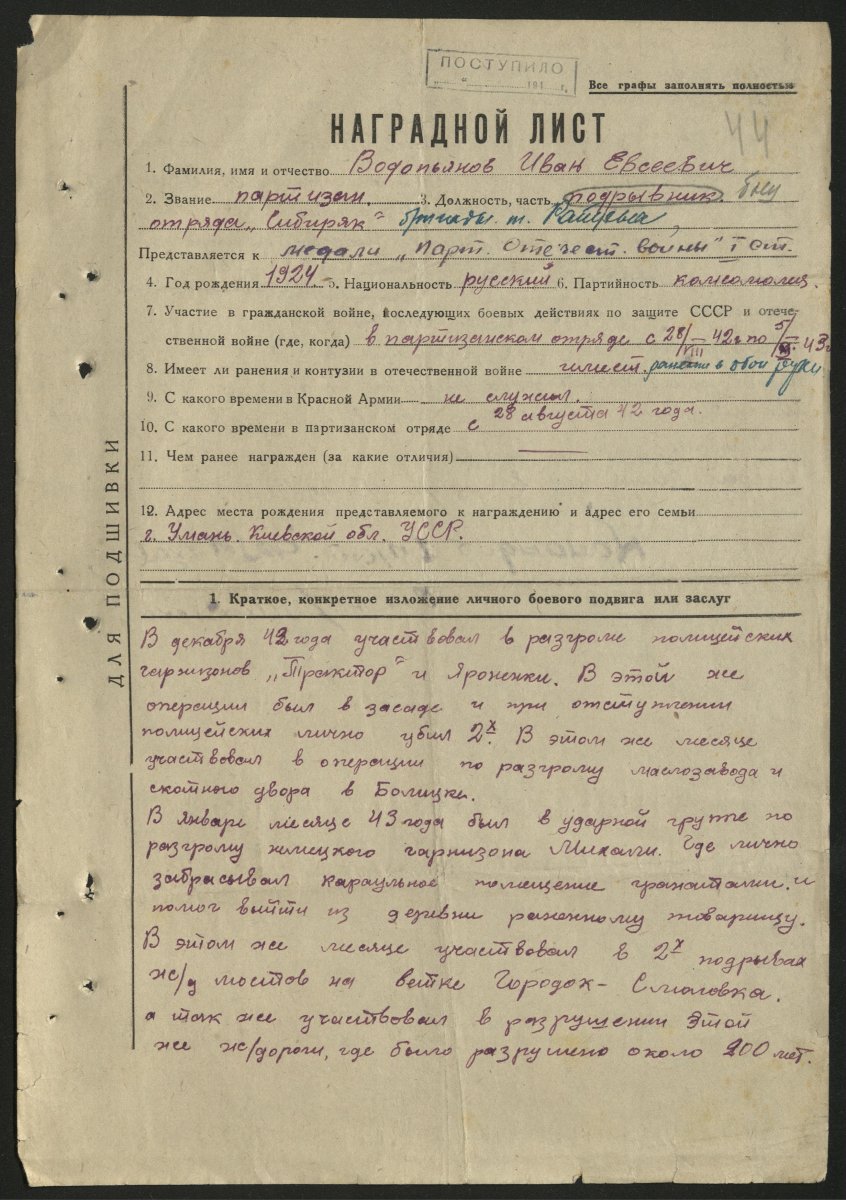 ПОСТУПИЛО
" 194 г.
Все графы заполнять полностью
44
НАГРАДНОЙ ЛИСТ
1. Фамилия, имя и отчество Водопьянов Иван Евсеевич
2. Звание партизан. 3. Должность, часть подрывник
отряда "Сибиряк" бригады т.
Представляется к медали "Парт. Отечест. войны" I ст.
4. Год рождения 1924 5. Национальность русский 6. Партийность комсомолец.
7. Участие в гражданской войне, последующих боевых действиях по защите СССР и отече-
ственной войне (где, когда) в партизанском отряде с 28/VIII 42 г по 43 г
8. Имеет ли ранения и контузии в отечественной войне ранен в обои руки
9. С какого времени в Красной Армии не служил.
10. С какого времени в партизанском отряде с 28 августа 42 года.
11. Чем ранее награжден (за какие отличия)
12. Адрес места рождения представляемого к награждению и адрес его семьи
г. Умань. Киевской обл. УССР.
ДЛЯ ПОДШИВКИ
1. Краткое, конкретное изложение личного боевого подвига или заслуг
В декабря 42 года участвовал в разгроме полицейских
гарнизонов "Трактор" и Яроненки. В этой же
операции был в засаде и при отступлении
полицейских лично убил 2х. В этом же месяце
участвовал в операции по разгрому маслозавода и
скотного двора в Болицке.
В январе месяце 43 года был в ударной группе по
разгрому немецкого гарнизона Михали. Где лично
забрасывал караульное помещение гранатами. и
помог выйти из деревни раненному товарищу.
В этом же месяце участвовал в 2х подрывах
ж/д мостов на ветке Городок - Смоловка.
а так же участвовал в разрушении этой
же ж/дороги, где было разрушено около 200 мет.